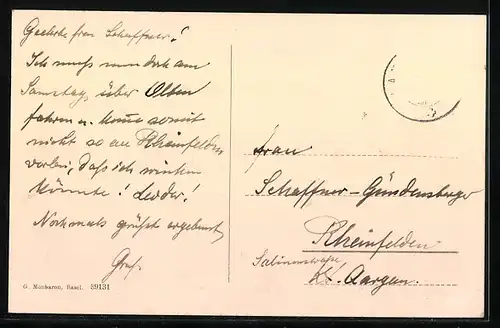 Geehrte Frau Schaffner!
Ich muss nun doch am
Samstag über Olten
fahren u. komme somit
nicht so an Rheinfelden
vorbei, dass ich winken
könnte! Leider!
Nochmals grüsst ergebenst,
Graf.
G. Monbaron, Basel. 89131
Frau
Schaffner-Gündensberger
Rheinfelden
Salinenstrasse
Kt. Aargau.